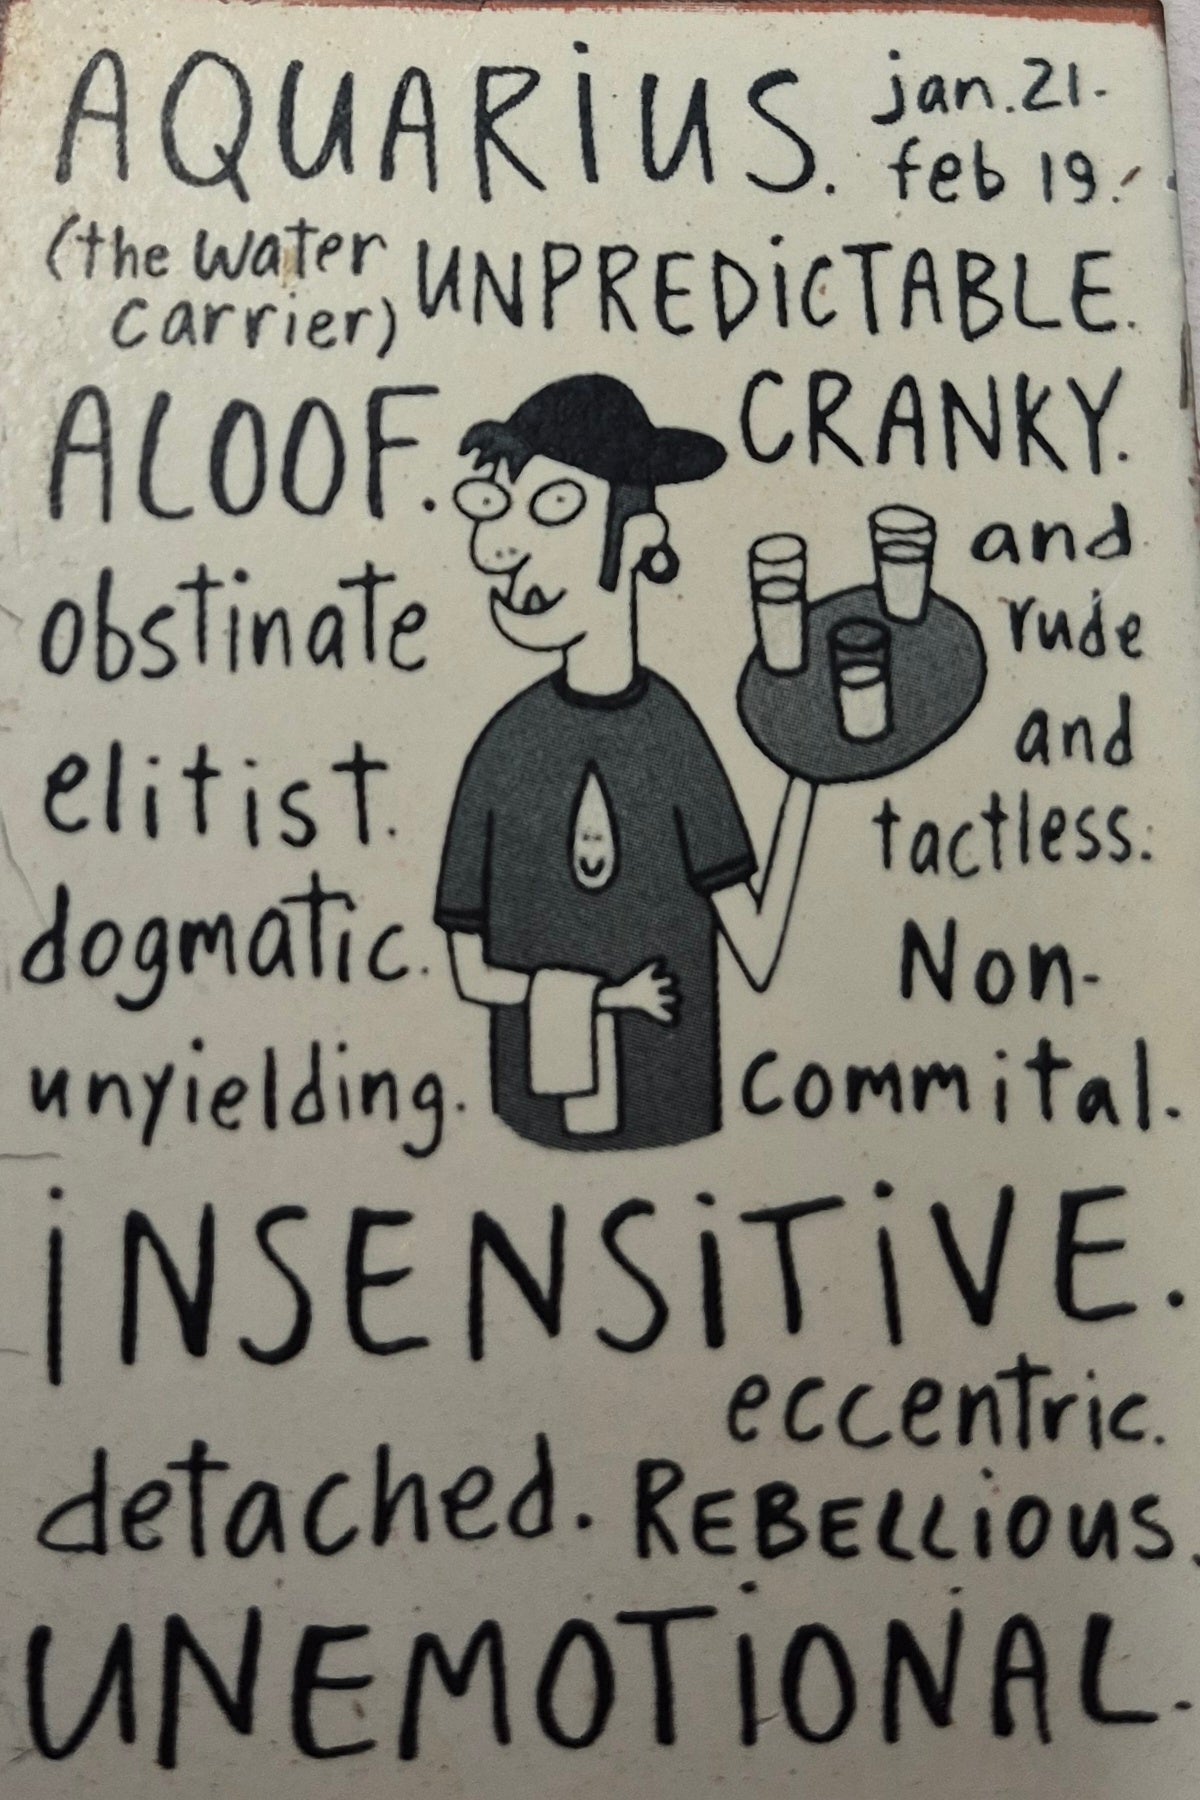 AQUARIUS. jan. 21-
feb 19.
(the water
carrier)
UNPREDICTABLE.
ALOOF.
CRANKY.
and
rude
and
tactless.
obstinate
elitist.
dogmatic.
unyielding.
Non-
commital.
INSENSITIVE.
eccentric.
detached. REBELLIOUS.
UNEMOTIONAL.